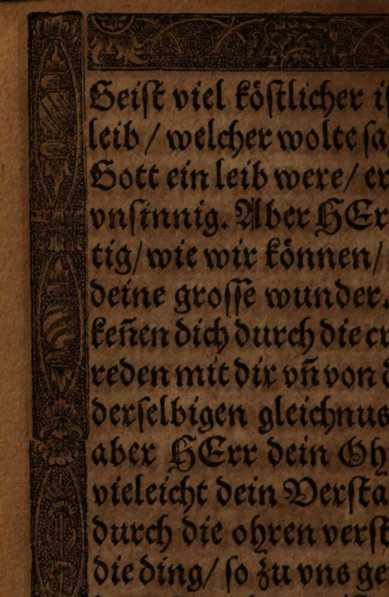 Geiſt viel koͤſtlicher
leib / welcher wolte
Gott ein leib were / er
vnſinnig. Aber HEr
tig / wie wir koͤnnen /
deine groſſe wunder.
keñen dich durch die
reden mit dir vñ von
derſelbigen gleichnus
aber HErr dein
vieleicht dein Verſta
durch die ohren verſt
die ding / ſo zu vns ge